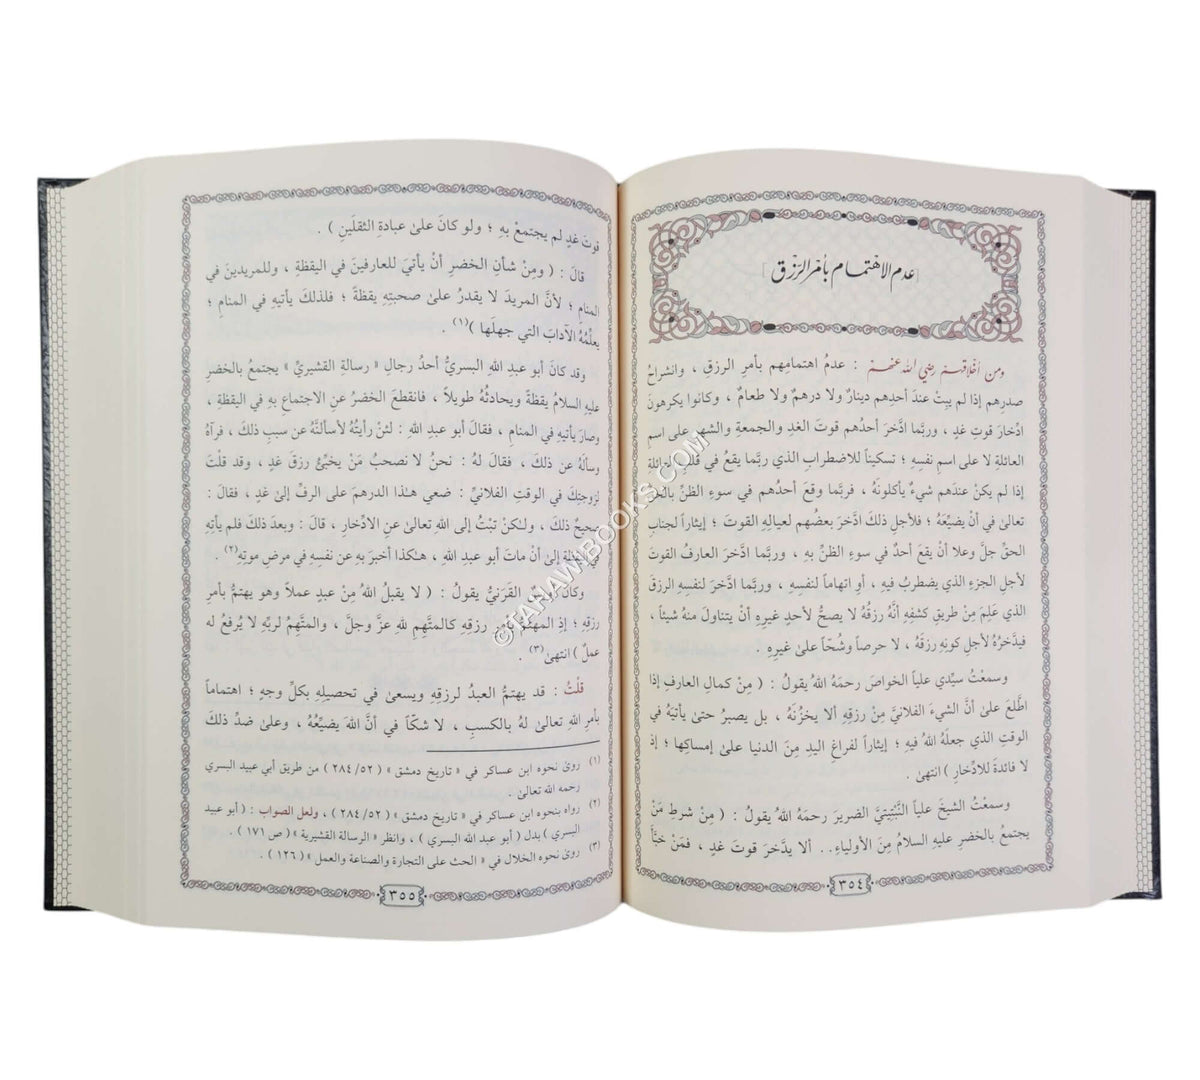 [عدم الاهتمام بأمر الرزق]
ومن أخلاقهم رضي الله عنهم : عدمُ اهتمامِهم بأمرِ الرزقِ ، وانشراحُ
صدرِهم إذا لم يبِتْ عندَ أحدِهم دينارٌ ولا درهمٌ ولا طعامٌ ، وكانوا يكرهونَ
ادِّخارَ قوتِ غدٍ ، وربَّما ادَّخرَ أحدُهم قوتَ الغدِ والجمعةِ والشهرِ على اسمِ
العائلةِ لا على اسمِ نفسِهِ ؛ تسكيناً للاضطرابِ الذي ربَّما يقعُ في قلبِ العائلةِ
إذا لم يكنْ عندَهم شيءٌ يأكلونَهُ ، فربَّما وقعَ أحدُهم في سوءِ الظنِّ بالحقِّ
تعالى في أنْ يضيِّعَهُ ؛ فلأجلِ ذلكَ ادَّخرَ بعضُهم لعيالِهِ القوتَ ؛ إيثاراً لجنابِ
الحقِّ جلَّ وعلا أنْ يقعَ أحدٌ في سوءِ الظنِّ بهِ ، وربَّما ادَّخرَ العارفُ القوتَ
لأجلِ الجزءِ الذي يضطربُ فيهِ ، أو اتهاماً لنفسِهِ ، وربَّما ادَّخرَ لنفسِهِ الرزقَ
الذي عَلِمَ مِنْ طريقِ كشفِهِ أنَّهُ رزقُهُ لا يصحُّ لأحدٍ غيرِهِ أنْ يتناولَ منهُ شيئاً ،
فيدَّخرُهُ لأجلِ كونِهِ رزقَهُ ، لا حرصاً وشُحّاً على غيرِهِ .
وسمعْتُ سيِّدي علياً الخواصَ رحمَهُ اللهُ يقولُ : ( مِنْ كمالِ العارفِ إذا
اطَّلعَ على أنَّ الشيءَ الفلانيَّ مِنْ رزقِهِ ألا يخزُنَهُ ، بل يصبرُ حتىٰ يأتيَهُ في
الوقتِ الذي جعلَهُ اللهُ فيهِ ؛ إيثاراً لفراغِ اليدِ مِنَ الدنيا على إمساكِها ؛ إذ
لا فائدةَ للادِّخارِ ) انتهىٰ .
وسمعْتُ الشيخَ علياً النَّبْتِيتيَّ الضريرَ رحمَهُ اللهُ يقولُ : ( مِنْ شرطِ مَنْ
يجتمعُ بالخضرِ عليهِ السلامُ مِنَ الأولياءِ.. ألا يدَّخرَ قوتَ غدٍ ، فمَنْ خبَّأَ
٣٥٤
قوتَ غدٍ لم يجتمعْ بهِ ؛ ولو كانَ علىٰ عبادةِ الثقلَينِ ) .
قالَ : ( ومِنْ شأنِ الخضرِ أنْ يأتيَ للعارفينَ في اليقظةِ ، وللمريدينَ في
المنامِ ؛ لأنَّ المريدَ لا يقدرُ علىٰ صحبتِهِ يقظةً ؛ فلذلكَ يأتيهِ في المنامِ ؛
يعلِّمُهُ الآدابَ التي جهلَها )(١) .
وقد كانَ أبو عبدِ اللهِ البسريُّ أحدُ رجالِ « رسالةِ القشيريِّ » يجتمعُ بالخضرِ
عليهِ السلامُ يقظةً ويحادثُهُ طويلاً ، فانقطعَ الخضرُ عنِ الاجتماعِ بهِ في اليقظةِ ،
وصارَ يأتيهِ في المنامِ ، فقالَ أبو عبدِ اللهِ : لئنْ رأيتُهُ لأسألنَّهُ عن سببِ ذلكَ ، فرآهُ
وسألَهُ عن ذلكَ ، فقالَ لهُ : نحنُ لا نصحبُ مَنْ يخبِّئُ رزقَ غدٍ ، وقد قلْتَ
لزوجتِكَ في الوقتِ الفلانيِّ : ضعي هـٰذا الدرهمَ على الرفِّ إلىٰ غدٍ ، فقالَ :
صحيحٌ ذلكَ ، ولـٰكنْ تبْتُ إلى اللهِ تعالىٰ عنِ الادِّخارِ ، قالَ : وبعدَ ذلكَ فلم يأتِهِ
في اليقظةِ إلىٰ أنْ ماتَ أبو عبدِ اللهِ ، هـٰكذا أخبرَ بهِ عن نفسِهِ في مرضِ موتِهِ(٢) .
وكانَ أويسٌ القرَنيُّ يقولُ : ( لا يقبلُ اللهُ مِنْ عبدٍ عملاً وهو يهتمُّ بأمرِ
رزقِهِ ؛ إذِ المهتمُّ بأمرِ رزقِهِ كالمتَّهِمِ للهِ عزَّ وجلَّ ، والمتَّهِمُ لربِّهِ لا يُرفعُ له
عملٌ ) انتهىٰ(٣) .
قلْتُ : قد يهتمُّ العبدُ لرزقِهِ ويسعىٰ في تحصيلِهِ بكلِّ وجهٍ ؛ اهتماماً
بأمرِ اللهِ تعالىٰ لهُ بالكسبِ ، لا شكّاً في أنَّ اللهَ يضيِّعُهُ ، وعلىٰ ضدِّ ذلكَ
(١) روىٰ نحوه ابن عساكر في « تاريخ دمشق » ( ٢٨٤/٥٢ ) من طريق أبي عبيد البسري
رحمه الله تعالىٰ .
(٢) رواه بنحوه ابن عساكر في « تاريخ دمشق » ( ٢٨٤/٥٢ ) ، ولعل الصواب : ( أبو عبيد
البسري ) بدل ( أبو عبد الله البسري ) ، وانظر « الرسالة القشيرية » ( ص ١٧١ ) .
(٣) روىٰ نحوه الخلال في « الحث على التجارة والصناعة والعمل » ( ١٢٦ ) .
٣٥٥
©TAHAWIBOOKS.COM